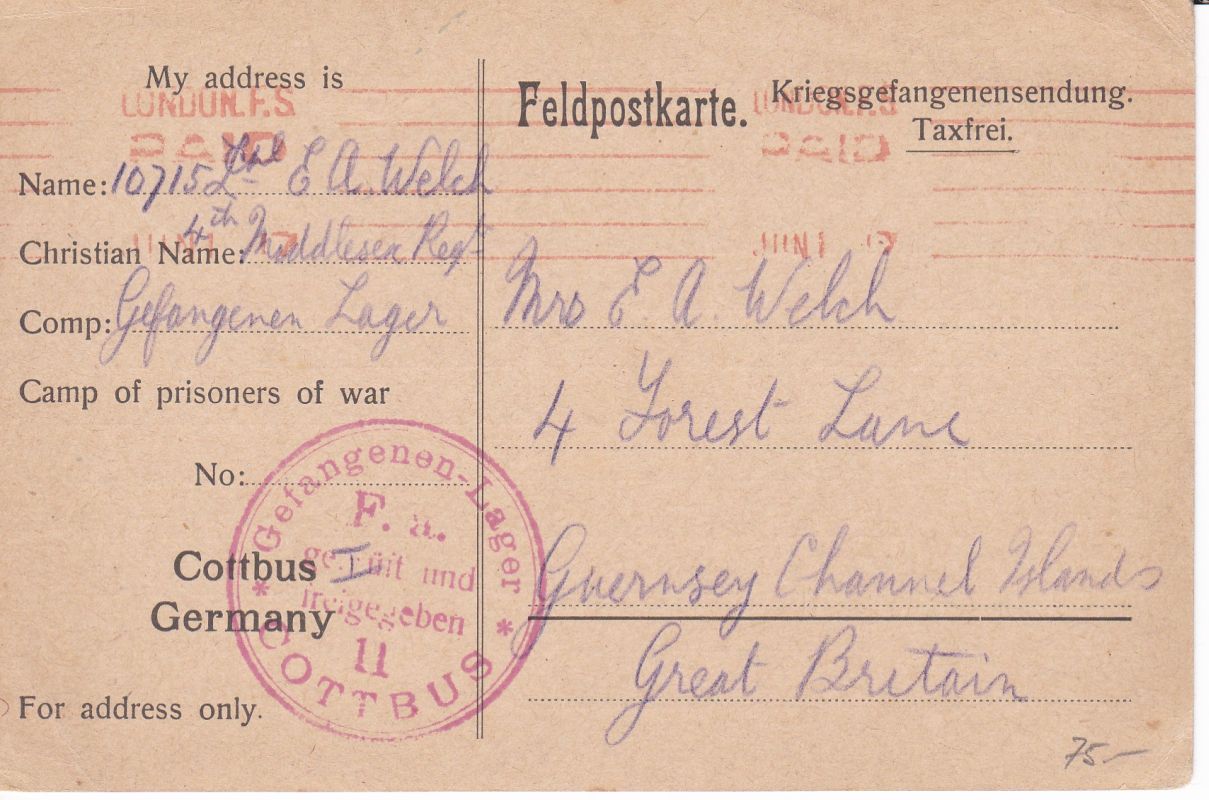 My address is
LONDON. F.S.
PAID
Name: 10715 Lpl E A. Welch
4th Middlesex Regt
Christian Name:
Comp: Gefangenen Lager
Camp of prisoners of war
No:
Cottbus I
Germany
For address only.
Gefangenen-Lager
F. a.
geprüft und
freigegeben
11
COTTBUS
Feldpostkarte.
Kriegsgefangenensendung.
Taxfrei.
LONDON. F.S.
PAID
JUN 1 17
Mrs E. A. Welch
4 Forest Lane
Guernsey Channel Islands
Great Britain
75.—